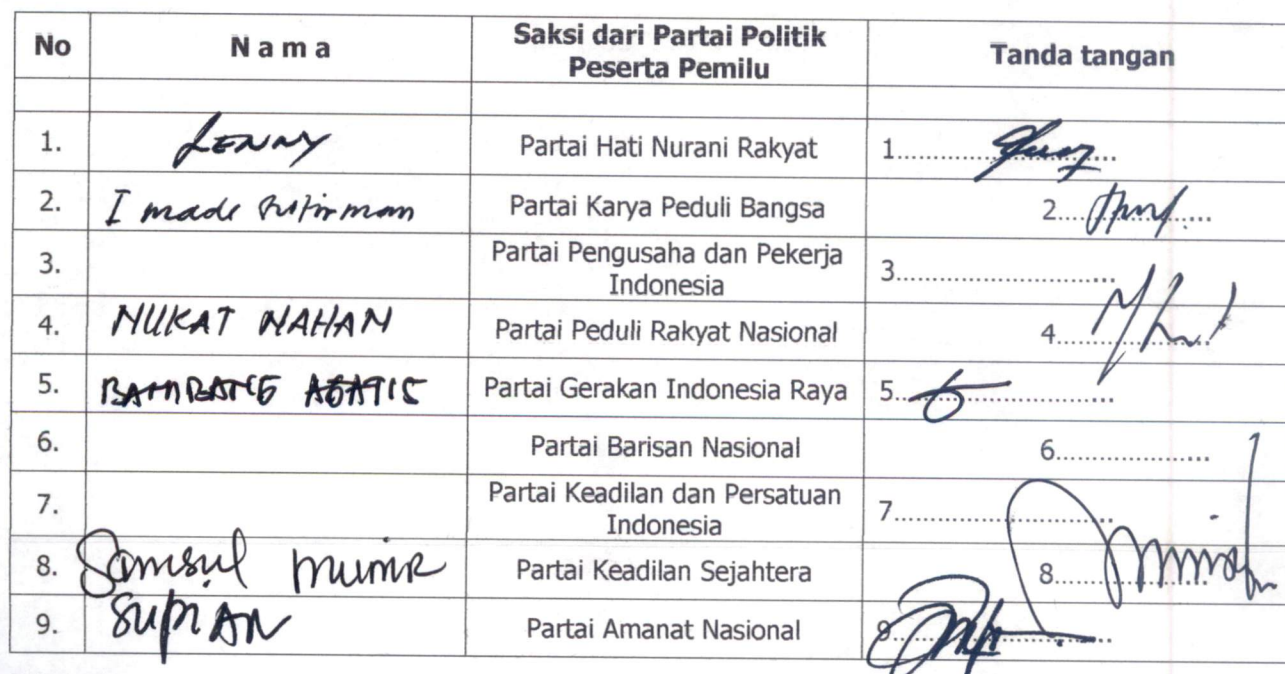 No Nama Saksi dari Partai Politik Peserta Pemilu Tanda tangan
1. LENNY Partai Hati Nurani Rakyat 1.....................
2. I made Partai Karya Peduli Bangsa 2.....................
3. Partai Pengusaha dan Pekerja Indonesia 3.....................
4. NUKAT NAHAN Partai Peduli Rakyat Nasional 4.....................
5. BAMBANG Partai Gerakan Indonesia Raya 5.....................
6. Partai Barisan Nasional 6.....................
7. Partai Keadilan dan Persatuan Indonesia 7.....................
8. Samsul munir Partai Keadilan Sejahtera 8.....................
9. SUPIAN Partai Amanat Nasional 9.....................